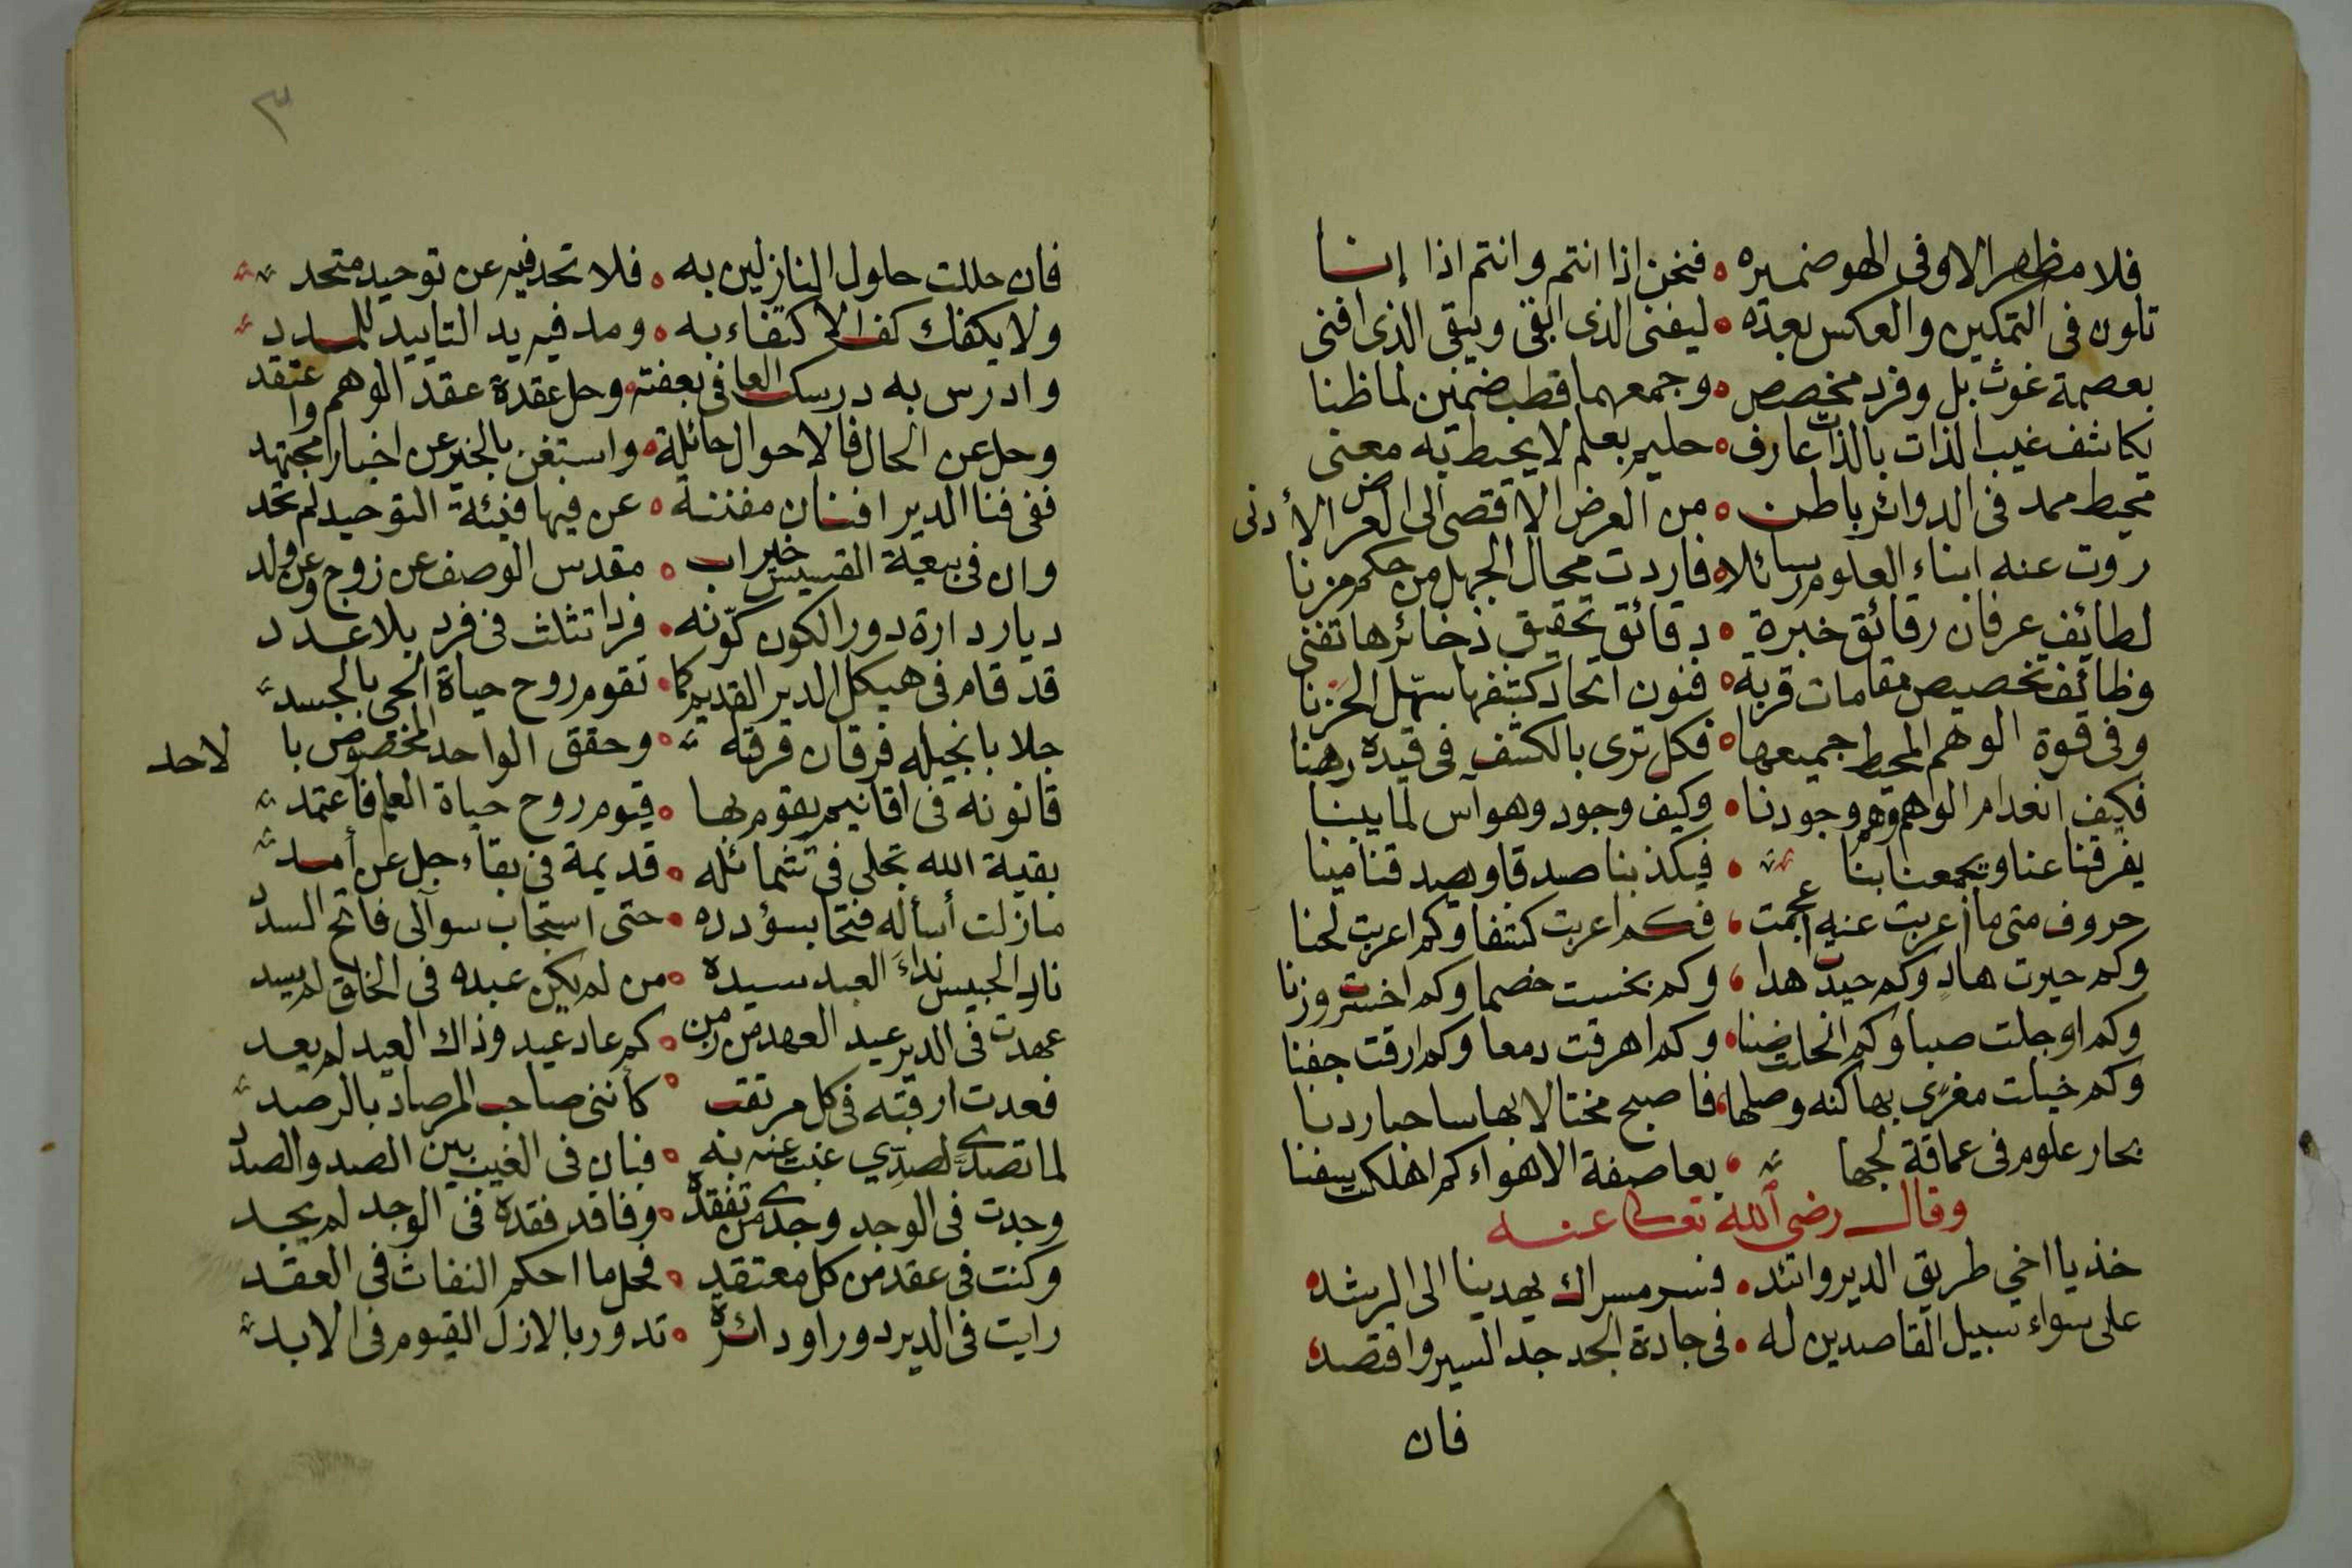 فلا مظهر الا وفى الهو ضميره ه فنحن اذا انتم وانتم اذا إنا
تلون فى التمكين والعكس بعده ه ليفنى الذى ابقى ويبقى الذى افنى
بعصمة غوث بل وفرد مخصص ه وجمعهما قطب ضمنين لما ظنا
يكاشف غيب الذات بالذات عارف ه حليم بعلم لا يحيط به معنى
محيط ممد فى الدوائر باطن ه من العرض الاقصى الى العرض الأدنى
روت عنه ابناء العلوم رسائلا ه فاردت مجال الجهل من حكم مزنا
لطائف عرفان رقائق خبرة ه دقائق تحقيق ذخائرها تفنى
وظائف تخصيص مقامات قربة ه فنون اتحاد كشفها سهّل الحَزنا
وفى قوة الوهم المحيط جميعها ه فكل ترى بالكشف فى قيده رهنا
فكيف انعدام الوهم وهو وجودنا ه وكيف وجود وهو آس لما يبنا
يفرقنا عنا ويجمعنا بنا ه فيكذبنا صدقا ويصدقنا مينا
حروف متى ما اعربت عنه اعجمت ، فكم اعربت كشفا وكم اعربت لحنا
وكم حيرت هادٍ وكم حيدت هدا ، وكم بخست خصما وكم اخسرت وزنا
وكم اوجلت صبا وكم انحلت ضنا ه وكم اهرقت دمعا وكم ارقت جفنا
وكم خيلت مغرًى بها كنه وصلها ، فاصبح مختالا بها ساحبا ردنا
بحار علوم فى عماقة لجها ، بعاصفة الاهواء كم اهلكت سفنا
وقال رضى الله تعالى عنه
خذ يا اخي طريق الدير واتئد ه فسر مسراك يهدينا الى الرشد
على سواء سبيل القاصدين له ه فى جادة الجد جد السير واقتصد
فان
٣
فان حللت حلول النازلين به ه فلا تحد فيه عن توحيد متحد
ولا يكفك كف الاكتفاء به ه ومد فيه يد التاييد للمدد
وادرس به درسك العافى بعفته ه وحل عقدة عقد الوهم واعتقد
وحل عن الحال فالاحوال حائلة ه واستغن بالخبر عن اخبار مجتهد
ففى فنا الدير افنان مفننة ه عن فيها فيئة التوحيد لم تحد
وان فى بيعة القسيس خير اب ه مقدس الوصف عن زوج وعن ولد
ديار دارة دور الكون كوّنه ه فردا تثلث فى فرد بلا عدد
قد قام فى هيكل الدير القديم كما ه تقوم روح حياة الحى بالجسد
جلا بانجيله فرقان فرقته ه وحقق الواحد المخصوص بالاحد
قانونه فى اقانيم يقوم بها ه قيوم روح حياة العلم فاعتمد
بقية الله تجلى فى شمائله ه قديمة فى بقاء جل عن أمد
مازلت أسأله فتحا بسؤدده ه حتى استجاب سوآلى فاتح السدد
نادِ الجيس نداءً العبد سيده ه من لم يكن عبده فى الخلق لم يسد
عهدت فى الدير عيد العهد من زمن ه كم عاد عيد وذاك العيد لم يعد
فعدت ارقبته فى كل مرتقب ه كأننى صاحب المرصاد بالرصد
لما تصدى لصدِّي غبت عنه به ه فبان فى الغيب بين الصد والصدد
وجدت فى الوجد وجدى من تفقده ه وفاقد فقده فى الوجد لم يجد
وكنت فى عقد من كل معتقد ه فحل ما احكم النفاث فى العقد
رايت فى الدير دورا ودائرة ه تدور بالازل القيوم فى الابد